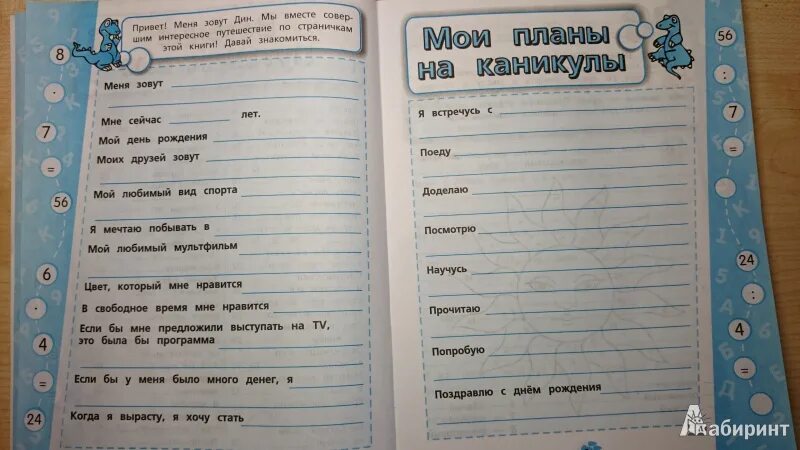 Привет! Меня зовут Дин. Мы вместе совер-
шим интересное путешествие по страничкам
этой книги! Давай знакомиться.
Меня зовут
Мне сейчас лет.
Мой день рождения
Моих друзей зовут
Мой любимый вид спорта
Я мечтаю побывать в
Мой любимый мультфильм
Цвет, который мне нравится
В свободное время мне нравится
Если бы мне предложили выступать на TV,
это была бы программа
Если бы у меня было много денег, я
Когда я вырасту, я хочу стать
8
·
7
=
56
6
·
4
=
24
Мои планы
на каникулы
Я встречусь с
Поеду
Доделаю
Посмотрю
Научусь
Прочитаю
Попробую
Поздравлю с днём рождения
56
:
7
=
24
:
4
=
Лабиринт